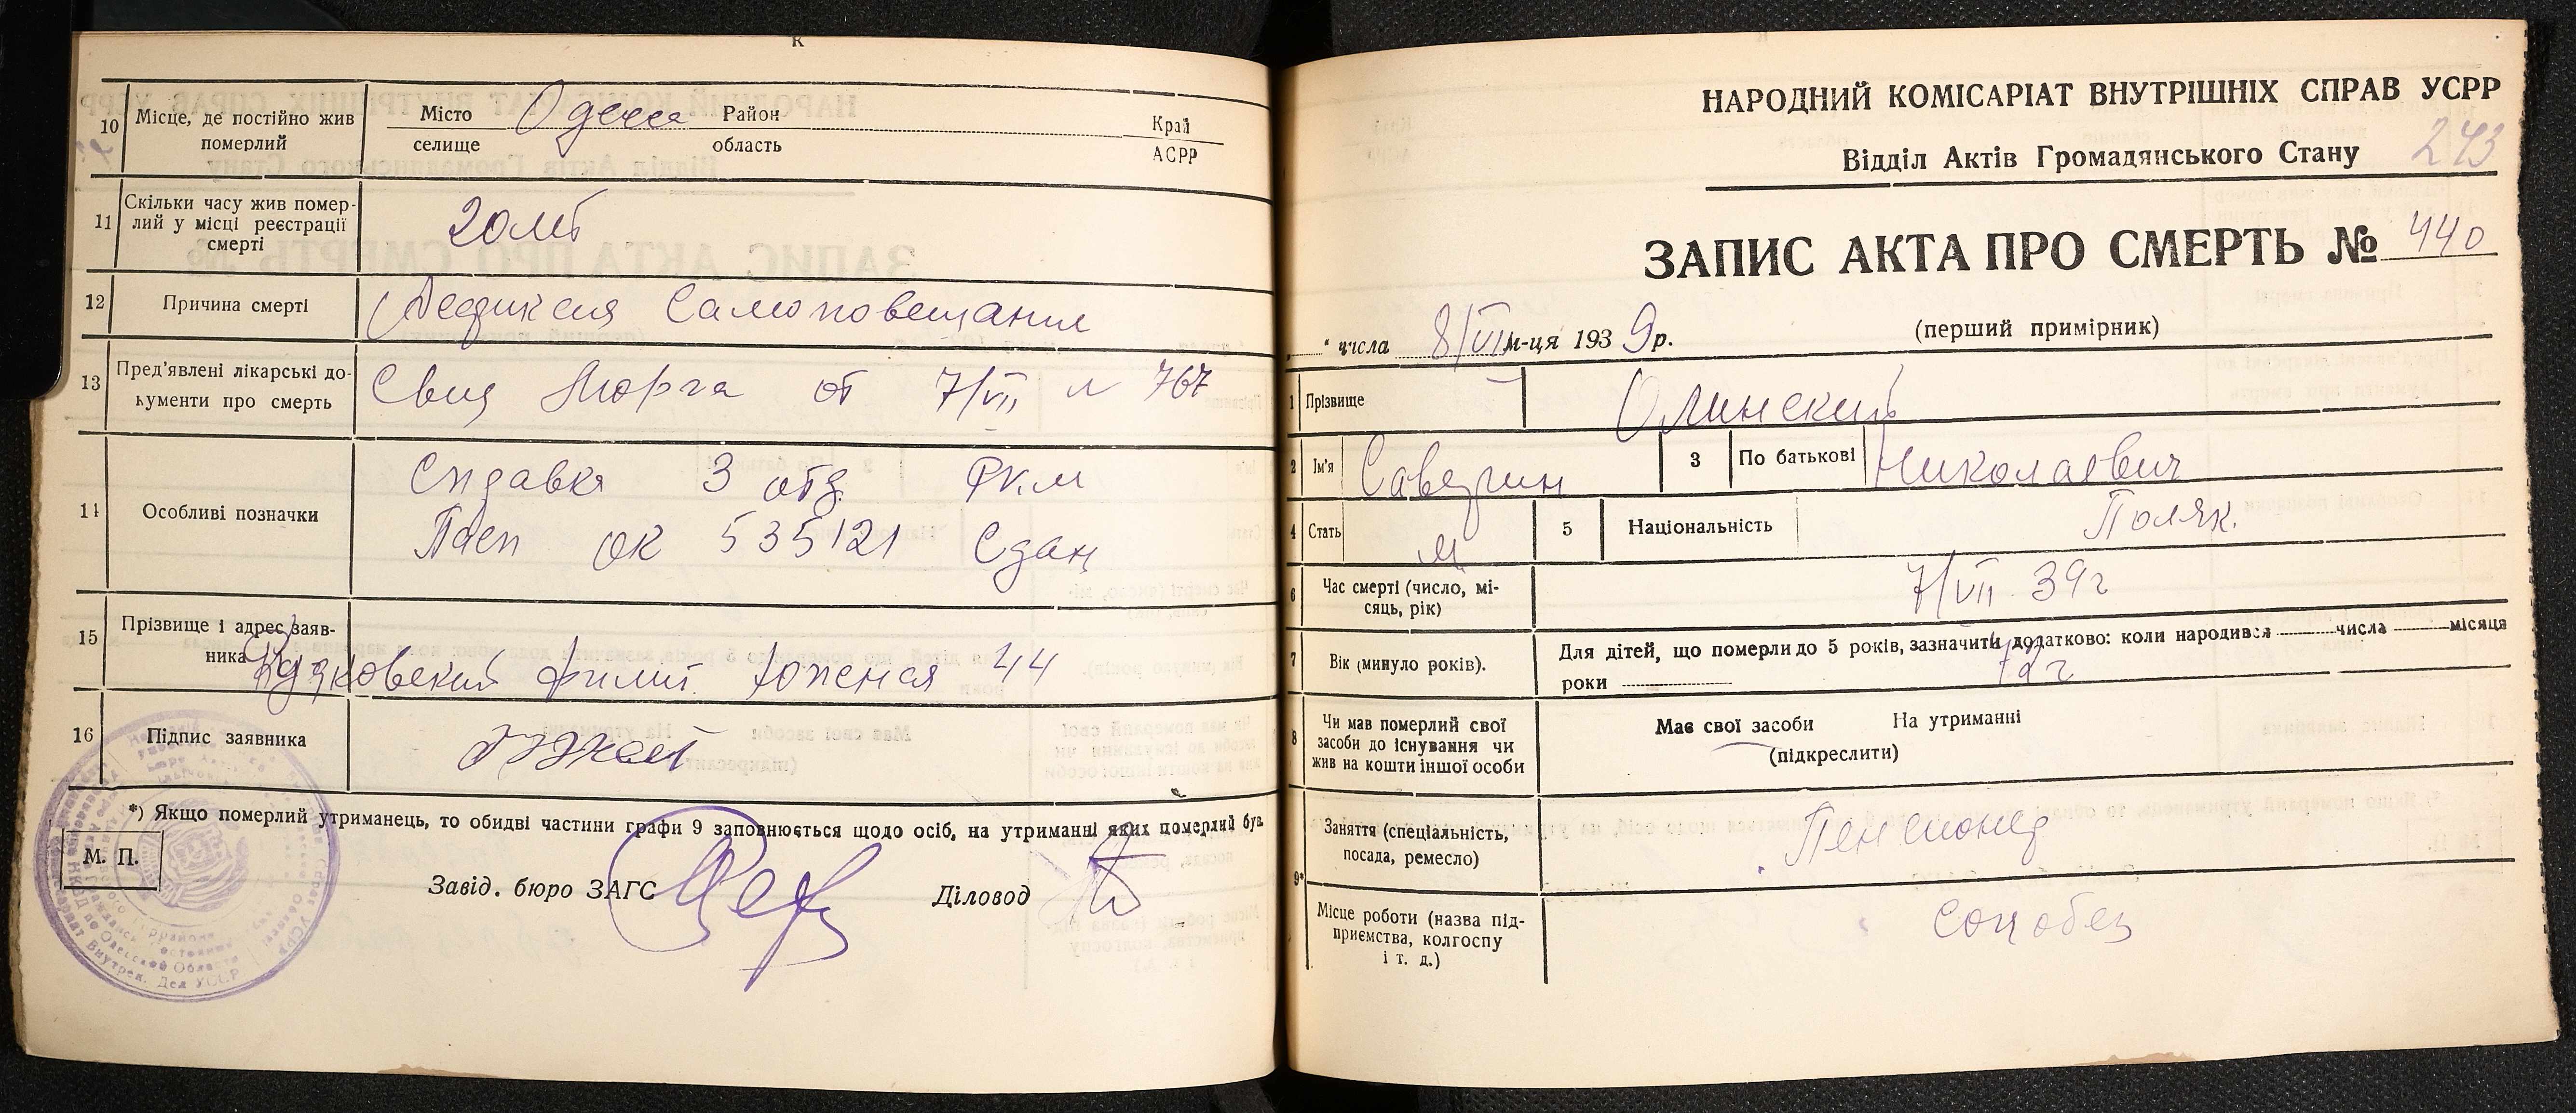 10 Місце, де постійно жив померлий
Місто селище Одесса Район область Край АСРР
11 Скільки часу жив померлий у місці реєстрації смерті
20 лет
12 Причина смерті
Асфиксия Самоповешания
13 Пред'явлені лікарські документи про смерть
Свид Морга от 7/VII № 767
14 Особливі позначки
Справка 3 отд. РКМ
Пасп ОК 535121 Сдан
15 Прізвище і адрес заявника
Филип. Южная 44
16 Підпис заявника
*) Якщо померлий утриманець, то обидві частини графи 9 заповнюється щодо осіб, на утриманні яких померлий був.
М. П.
Завід. бюро ЗАГС
Діловод
НАРОДНИЙ КОМІСАРІАТ ВНУТРІШНІХ СПРАВ УСРР
Відділ Актів Громадянського Стану
243
ЗАПИС АКТА ПРО СМЕРТЬ № 440
" числа 8/VII м-ця 1939р.
(перший примірник)
1 Прізвище Олинский
2 Ім'я Саверин 3 По батькові Николаевич
4 Стать м 5 Національність Поляк.
6 Час смерті (число, місяць, рік)
7/VII 39 г
7 Вік (минуло років).
Для дітей, що померли до 5 років, зазначити додатково: коли народився числа місяця
роки
72 г
8 Чи мав померлий свої засоби до існування чи жив на кошти іншої особи
Має свої засоби На утриманні
(підкреслити)
9* Заняття (спеціальність, посада, ремесло)
Пенсионер
Місце роботи (назва підприємства, колгоспу і т. д.)
Соцобез